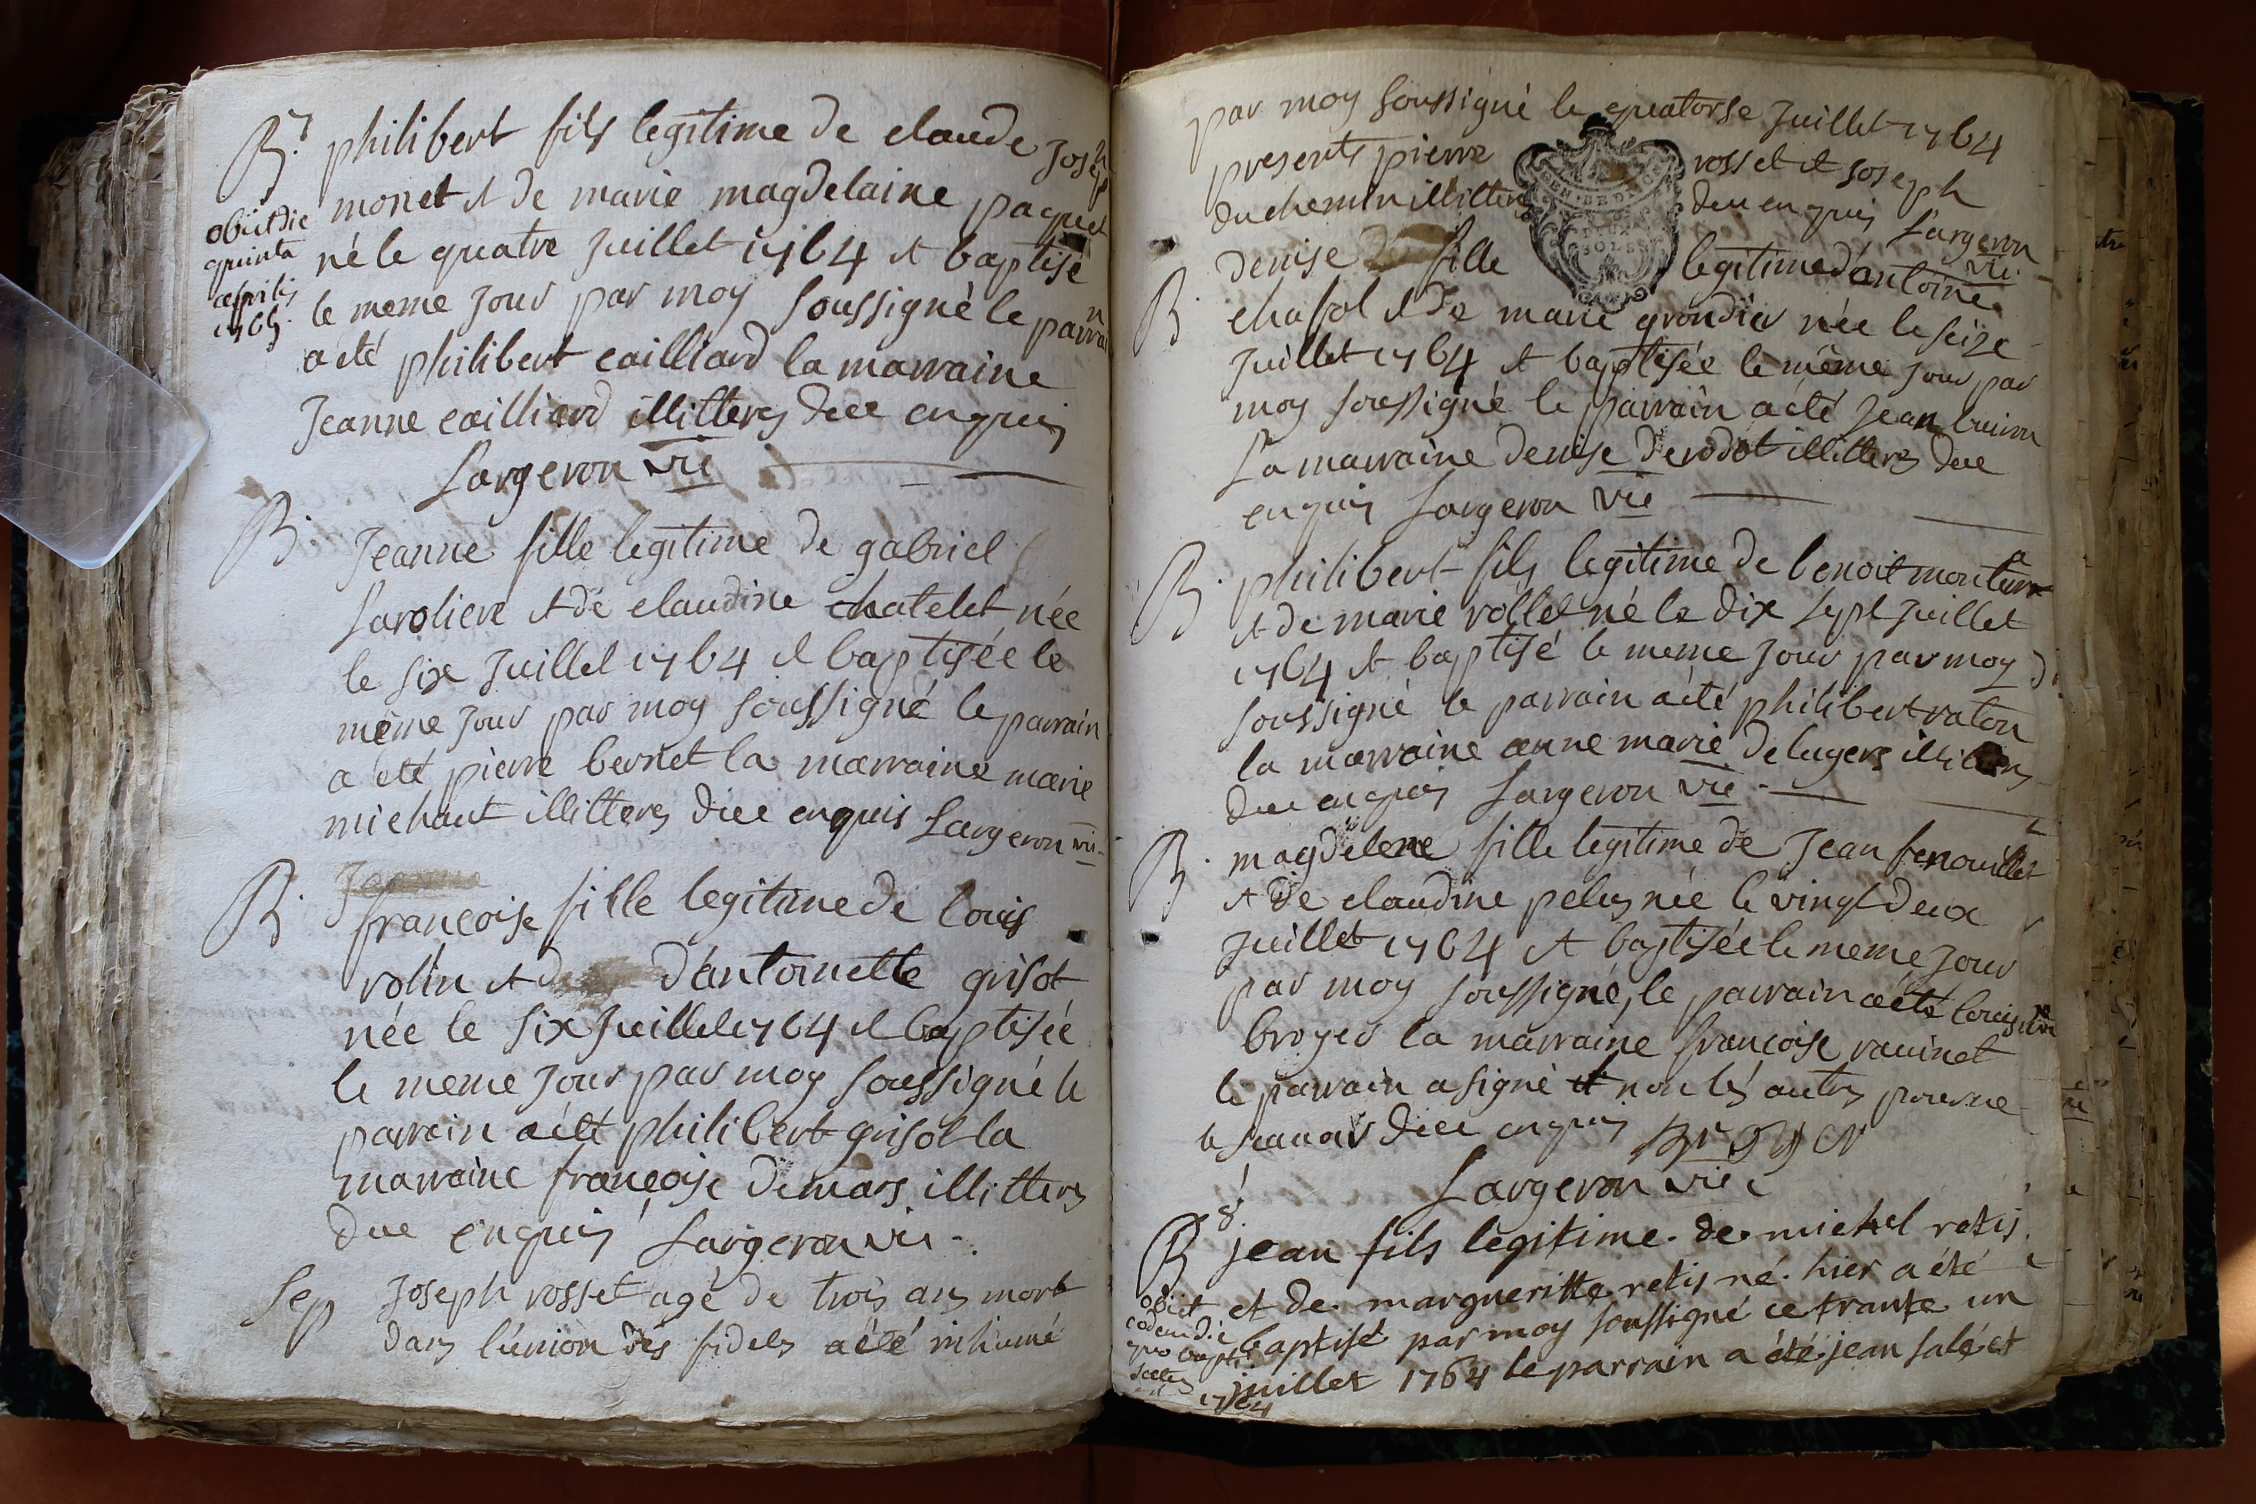 B.
philibert fils legitime de claude Joseph
monet et de marie magdelaine paquet
né le quatre Juillet 1764 et baptisé
le meme Jour par moy soussigné le parrain
a été philibert cailliard la marraine
Jeanne cailliard illitteres due enquis
Largeron vic
obiit die
quinta
aprilis
1765.
B.
Jeanne fille legitime de gabriel
Laroliere et de claudine chatelet née
le six Juillet 1764 et baptisée le
même Jour par moy soussigné le parrain
a eté pierre bernet la marraine marie
michaut illitteres due enquis Largeron vic
B.
francoise fille legitime de louis
rolin et d'antoinette grisot
née le six Juillet 1764 et baptisée
le meme Jour par moy soussigné le
parrain a été philibert grisot la
marraine francoise demars illitteres
due enquis Largeron vic
Sep
Joseph rosset agé de trois ans mort
dans l'union des fidels a été inhumé
par moy soussigné le quatorse Juillet 1764
presents pierre rosset et Joseph
duchemin illitteres due enquis Largeron
vic.
B.
denise fille legitime d'antoine
chasol et de marie grondier née le seize
Juillet 1764 et baptisée le même Jour par
moy soussigné le parrain a été Jean
La marraine denise derodot illitteres due
enquis Largeron vic
B.
philibert fils legitime de benoit
et de marie rollet né le dix sept Juillet
1764 et baptisé le meme Jour par moy
soussigné le parrain a été philibert raton
la marraine anne marie delugers illitteres
due enquis Largeron vic
B.
magdelene fille legitime de Jean fenouillet
et de claudine pelus née le vingt deux
Juillet 1764 et baptisée le meme Jour
par moy soussigné, le parrain a été louis
broyer la marraine francoise rauinet
le parrain a signé et non les autres pour ne
le scauoir due enquis broyer
Largeron vic
B
jean fils legitime de michel retis
et de margueritte retis né hier a été
baptisé par moy soussigné ce trante un
juillet 1764 le parrain a été jean salé et
obiit
eadem die
quo bapt.
1764